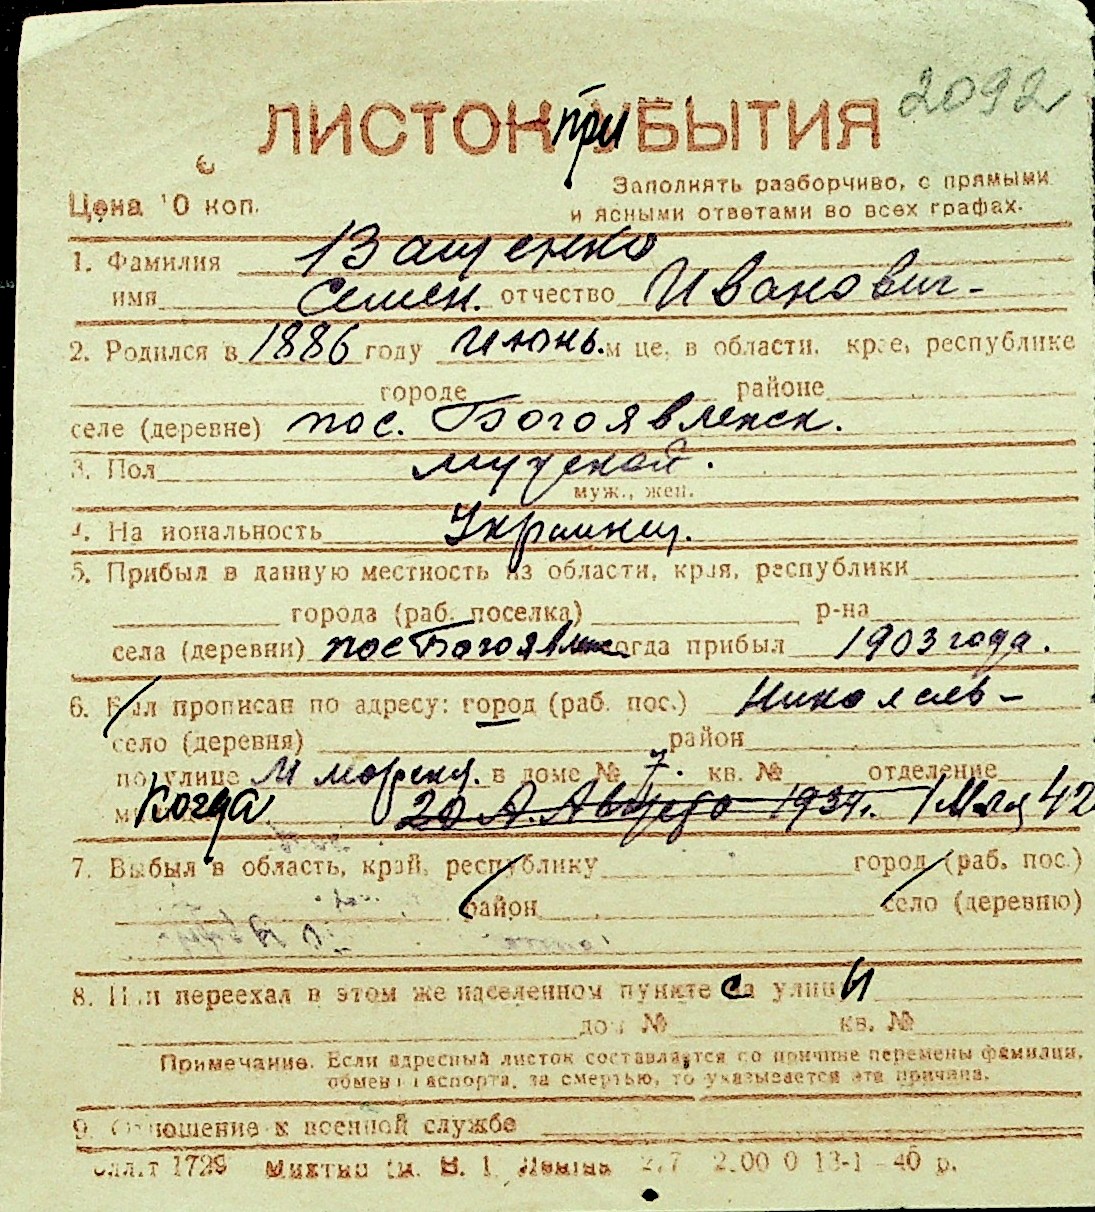 2092
ЛИСТОК при УБЫТИЯ
Цена 10 коп.
Заполнять разборчиво, с прямыми
и ясными ответами во всех графах.
1. Фамилия Ващенко
имя Семен. отчество Иванович-
2. Родился в 1886 году Июнь. м це, в области, крае, республике
городе районе
селе (деревне) пос. Богоявленск.
3. Пол мужской.
муж., жен.
4. На иональность Украинец.
5. Прибыл в данную местность из области, края, республики
города (раб. поселка) р-на
села (деревни) пос Богоявленск когда прибыл 1903 года.
6. Был прописан по адресу: город (раб. пос.) Николаев-
село (деревня) район
по улице М морская. в доме № 7. кв. № отделение
Когда 20 Августа 1934г. 1 Мая 42
7. Выбыл в область, край, республику город (раб. пос.)
район село (деревню)
8. Или переехал в этом же населенном пункте с улицы
дом № кв. №
Примечание. Если адресный листок составляется по причине перемены фамилии,
обмена паспорта, за смертью, то указывается эта причина.
9. Отношение к военной службе
1729 2.00 0 13-1-40 р.